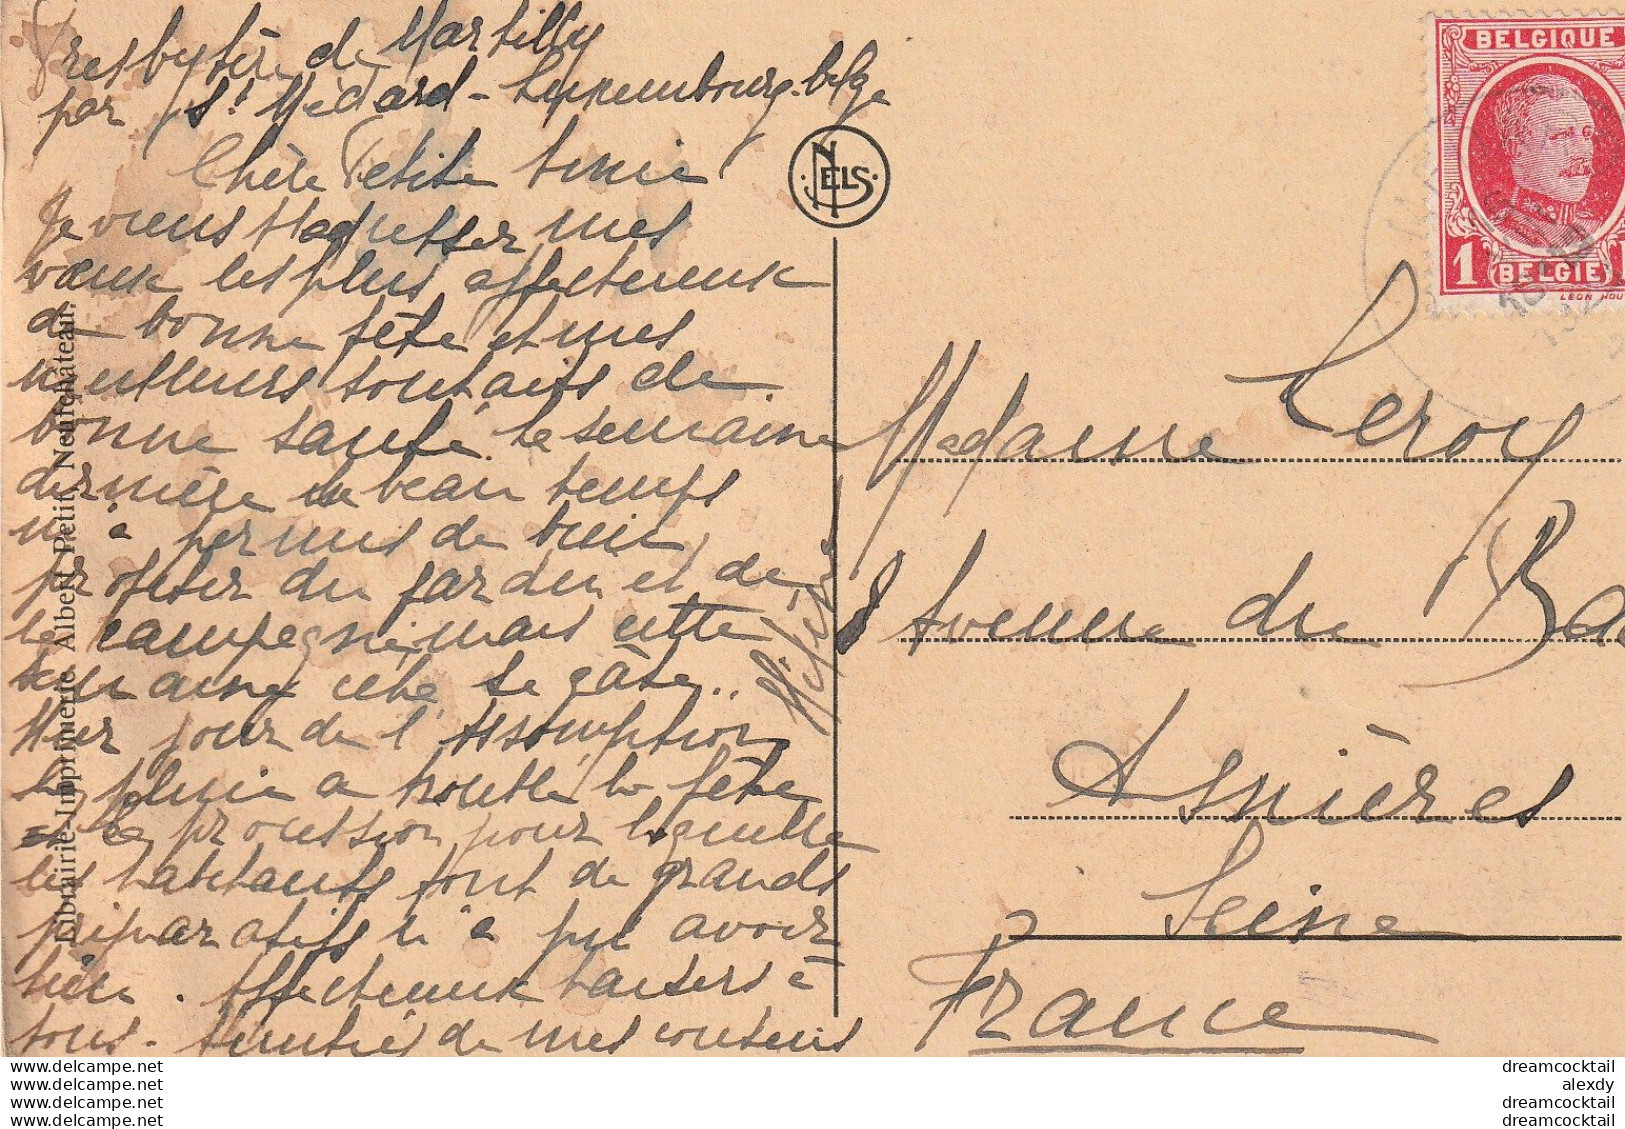 Presbytère de Martilly
par St Médard - Luxembourg belge
Chère Petite Amie
Je viens t'adresser mes
vœux les plus affectueux
de bonne fête et mes
meilleurs souhaits de
bonne santé. La semaine
dernière le beau temps
m'a permis de bien
profiter du jardin et de
la campagne, mais cette
semaine cela se gâte..
Hier jour de l'Assomption
la pluie a troublé la fête
et la procession pour laquelle
les habitants font de grands
préparatifs n'a pu avoir
lieu. Affectueux baisers à
tous. Amitiés de mes cousins
Librairie-Imprimerie Albert Petit, Neufchâteau.
NELS
BELGIQUE
1
BELGIE
LEON HOU
Madame Leroy
8 Avenue du Ba
Asnières
Seine
France
dreamcocktail
alexdy
dreamcocktail
dreamcocktail
www.delcampe.net
www.delcampe.net
www.delcampe.net
www.delcampe.net